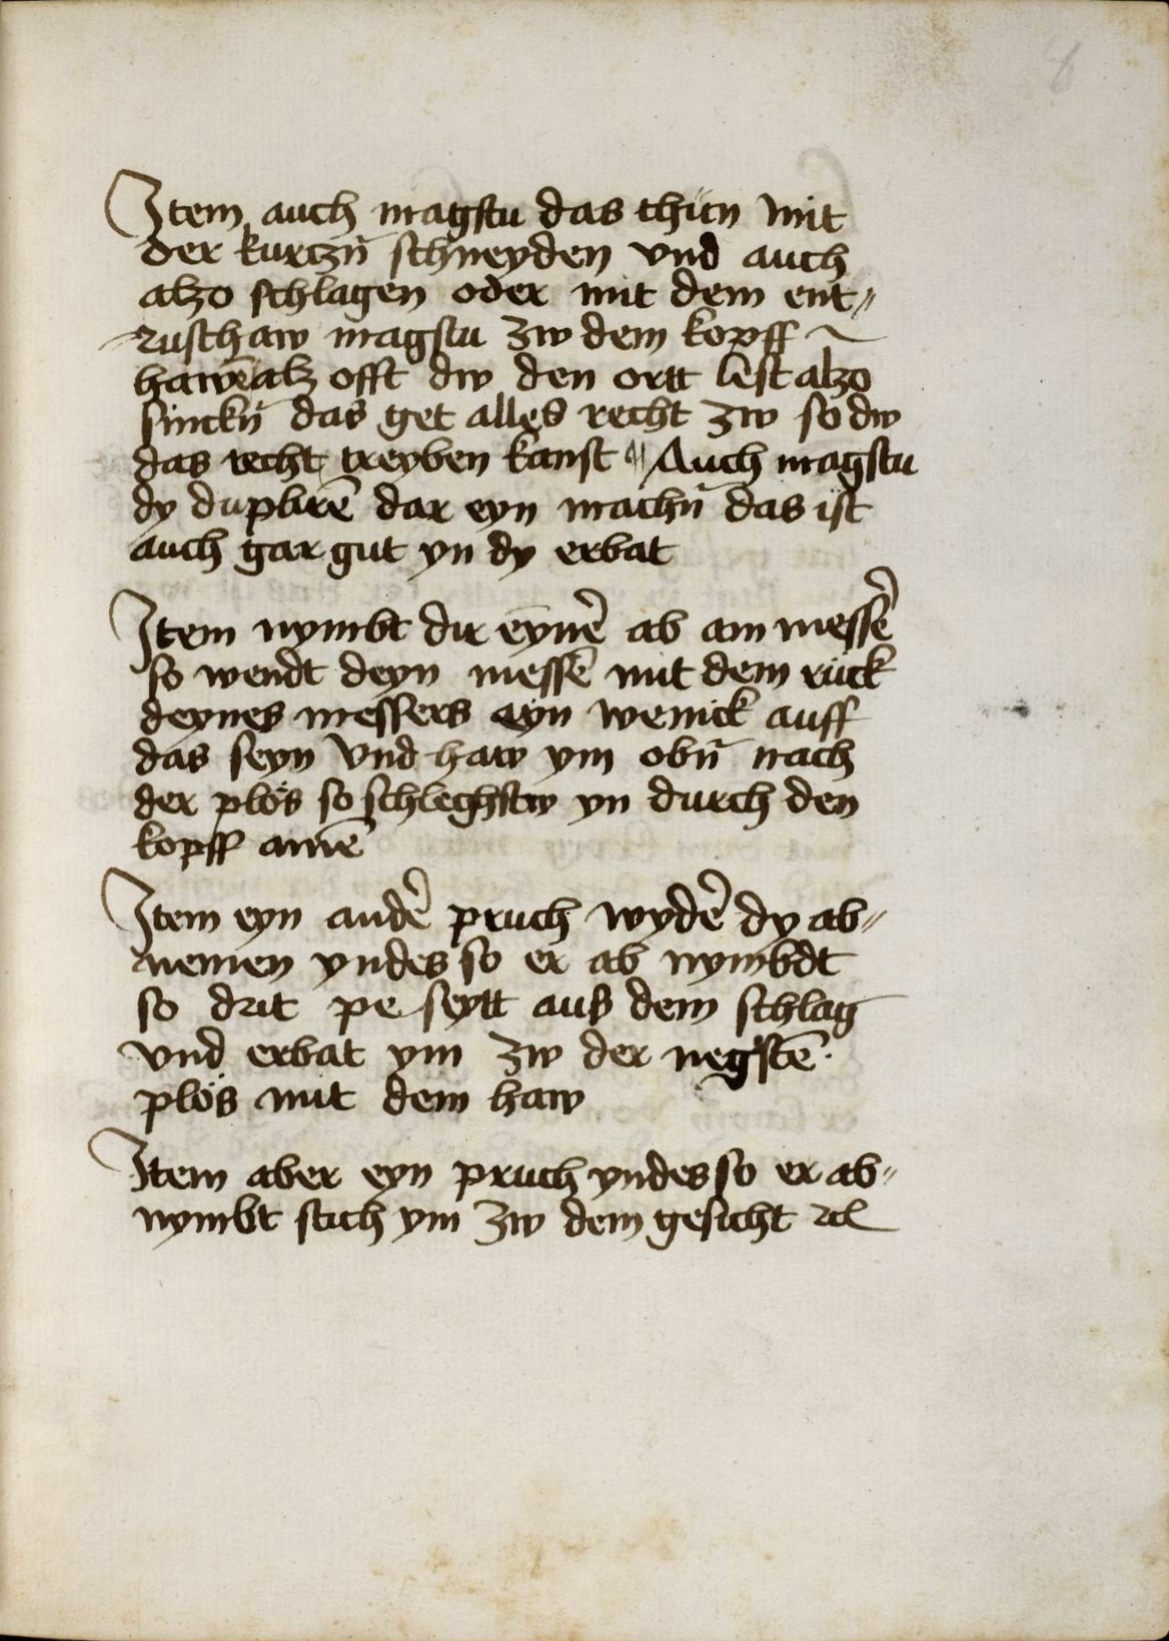 8
Item auch magstu das thün mit
der kurczn̄ schneyden vnd auch
alzo schlagen oder mit dem ent〃
rusthaw magstu zw dem kopff
hawē alz offt dw den ortt lest alzo
sinckn̄ das get alles recht zw so dw
das recht treyben kanst ¶ Auch magstu
dy duplirē dar eyn machn̄ das ist
auch gar gut yn dy erbat
Item nymbt dir eynē ab am messē
so wendt deyn messē mit dem rück
deynes messers eyn wenick auff
das seyn vnd haw ym obn̄ nach
der plös so schlechstw yn durch den
kopff amē
Item eyn andē pruch wydē dy ab〃
nemen yndes so er ab nymbdt
so drit pe seytt aus dem schlag
vnd erbat ym zw der negstē
plös mit dem haw
Item aber eyn pruch yndes so er ab〃
nymbt stich ym zw dem gesicht ꝛc